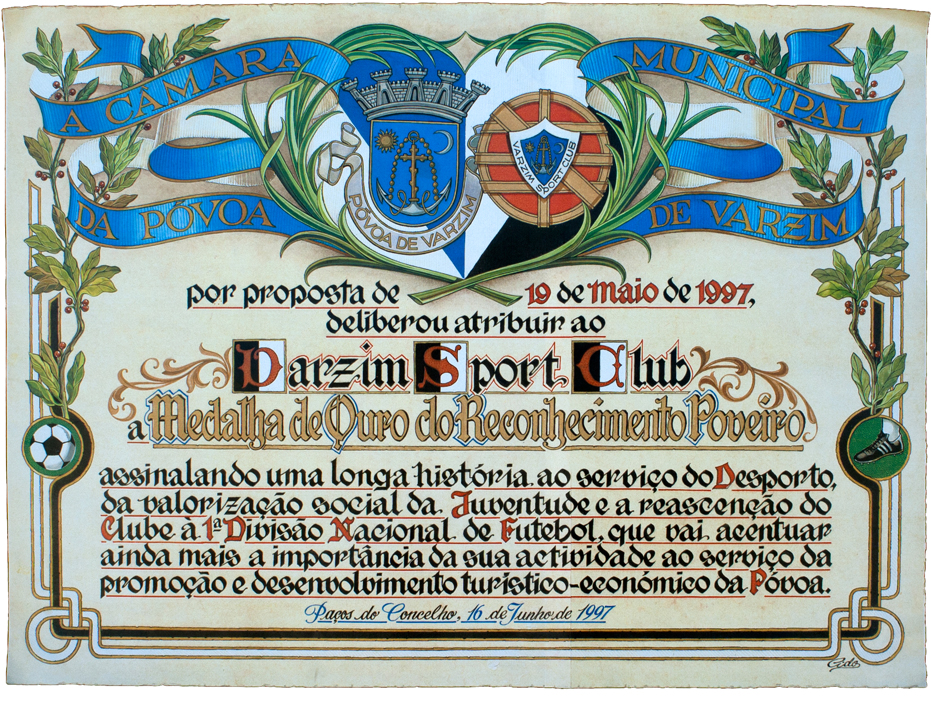 A CÂMARA MUNICIPAL
DA PÓVOA DE VARZIM
PÓVOA DE VARZIM
VARZIM SPORT CLUB
por proposta de 19 de Maio de 1997,
deliberou atribuir ao
Varzim Sport Club
a Medalha de Ouro do Reconhecimento Poveiro
assinalando uma longa história ao serviço do Desporto,
da valorização social da Juventude e a reascenção do
Clube à 1ª Divisão Nacional de Futebol, que vai acentuar
ainda mais a importância da sua actividade ao serviço da
promoção e desenvolvimento turístico-económico da Póvoa.
Paços do Concelho, 16 de Junho de 1997